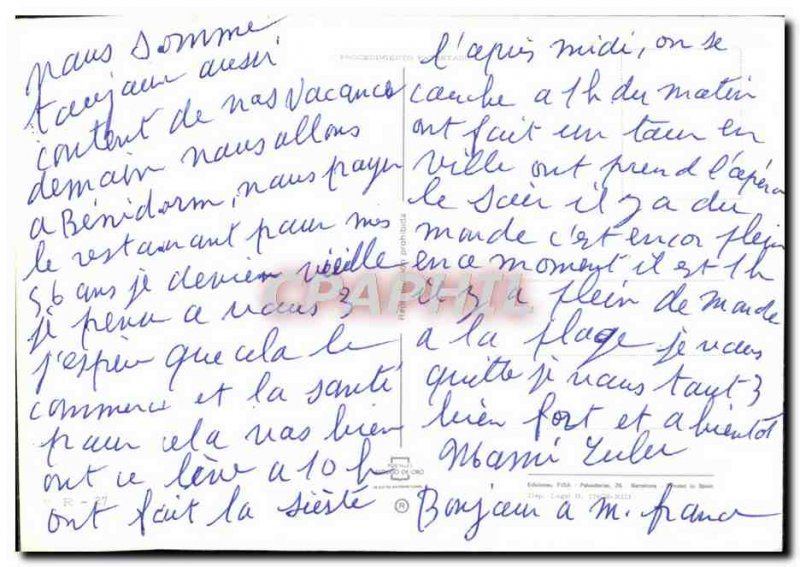 nous somme
toujour aussi
content de nos vacance
demain nous allons
a Bénidorm, nous payer
le restaurant pour mes
56 ans je devien vieille
je pense a vous 3
j'espèr que cela le
commerce et la santé
pour cela vas bien
ont ce lève a 10 h
ont fait la sièste
l'après midi, on se
couche a 1h du matin
ont fait un tour en
ville ont prend l'apéro
le soir il y a du
monde c'est encor plein
en ce moment il est 1h
il y a plein de monde
a la plage je vous
quitte je vous tout 3
bien fort et a bientot
Mami
Bonjour a M. France
CPARHIL
PROCEDIMIENTO
prohibida
R - 27
POSTALES
ESCUDO DE ORO
®
Ediciones, FISA - Palaudarias, 26, Barcelona - Printed in Spain
Dep. Legal B.